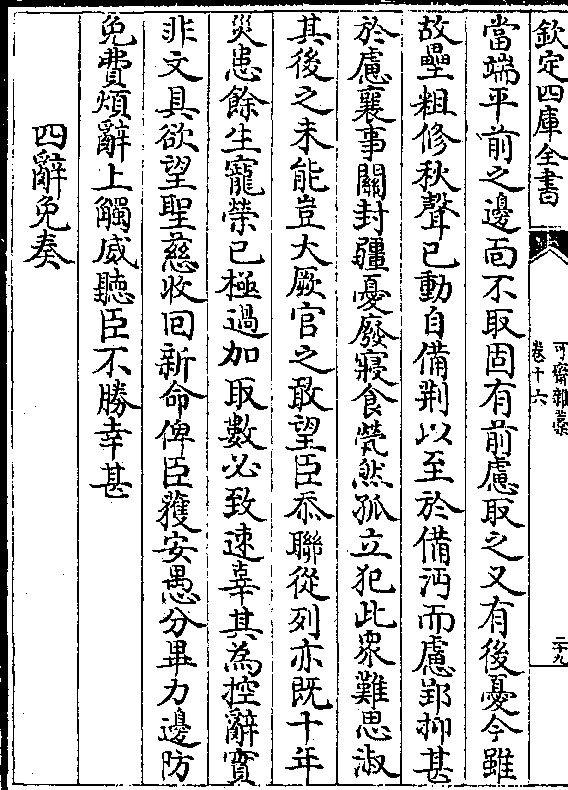 欽定四庫全書
可齋雜藁
卷十六
二十九
當端平前之邊面不取固有前慮取之又有後憂今雖
故壘粗修秋聲已動自備荆以至於備沔而慮郢抑甚
於慮襄事關封疆憂廢寢食煢然孤立犯此衆難思淑
其後之未能豈大厥官之敢望臣忝聯從列亦既十年
災患餘生寵榮已極過加取數必致速辜其為控辭實
非文具欲望聖慈收回新命俾臣獲安愚分畢力邊防
免費煩辭上觸威聽臣不勝幸甚
四辭免奏